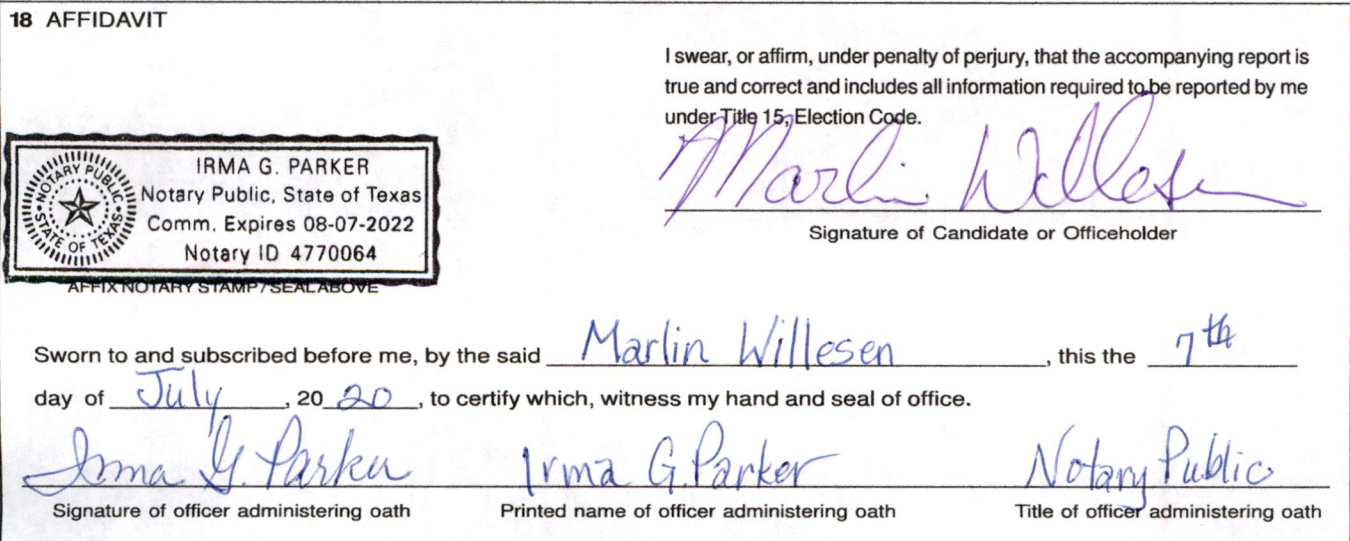 18 AFFIDAVIT
I swear, or affirm, under penalty of perjury, that the accompanying report is
true and correct and includes all information required to be reported by me
under Title 15, Election Code.
NOTARY PUBLIC
STATE OF TEXAS
IRMA G. PARKER
Notary Public, State of Texas
Comm. Expires 08-07-2022
Notary ID 4770064
AFFIX NOTARY STAMP / SEAL ABOVE
Marlin Willesen
Signature of Candidate or Officeholder
Sworn to and subscribed before me, by the said Marlin Willesen, this the 7th
day of July, 2020, to certify which, witness my hand and seal of office.
Irma G. Parker Irma G. Parker Notary Public
Signature of officer administering oath Printed name of officer administering oath Title of officer administering oath